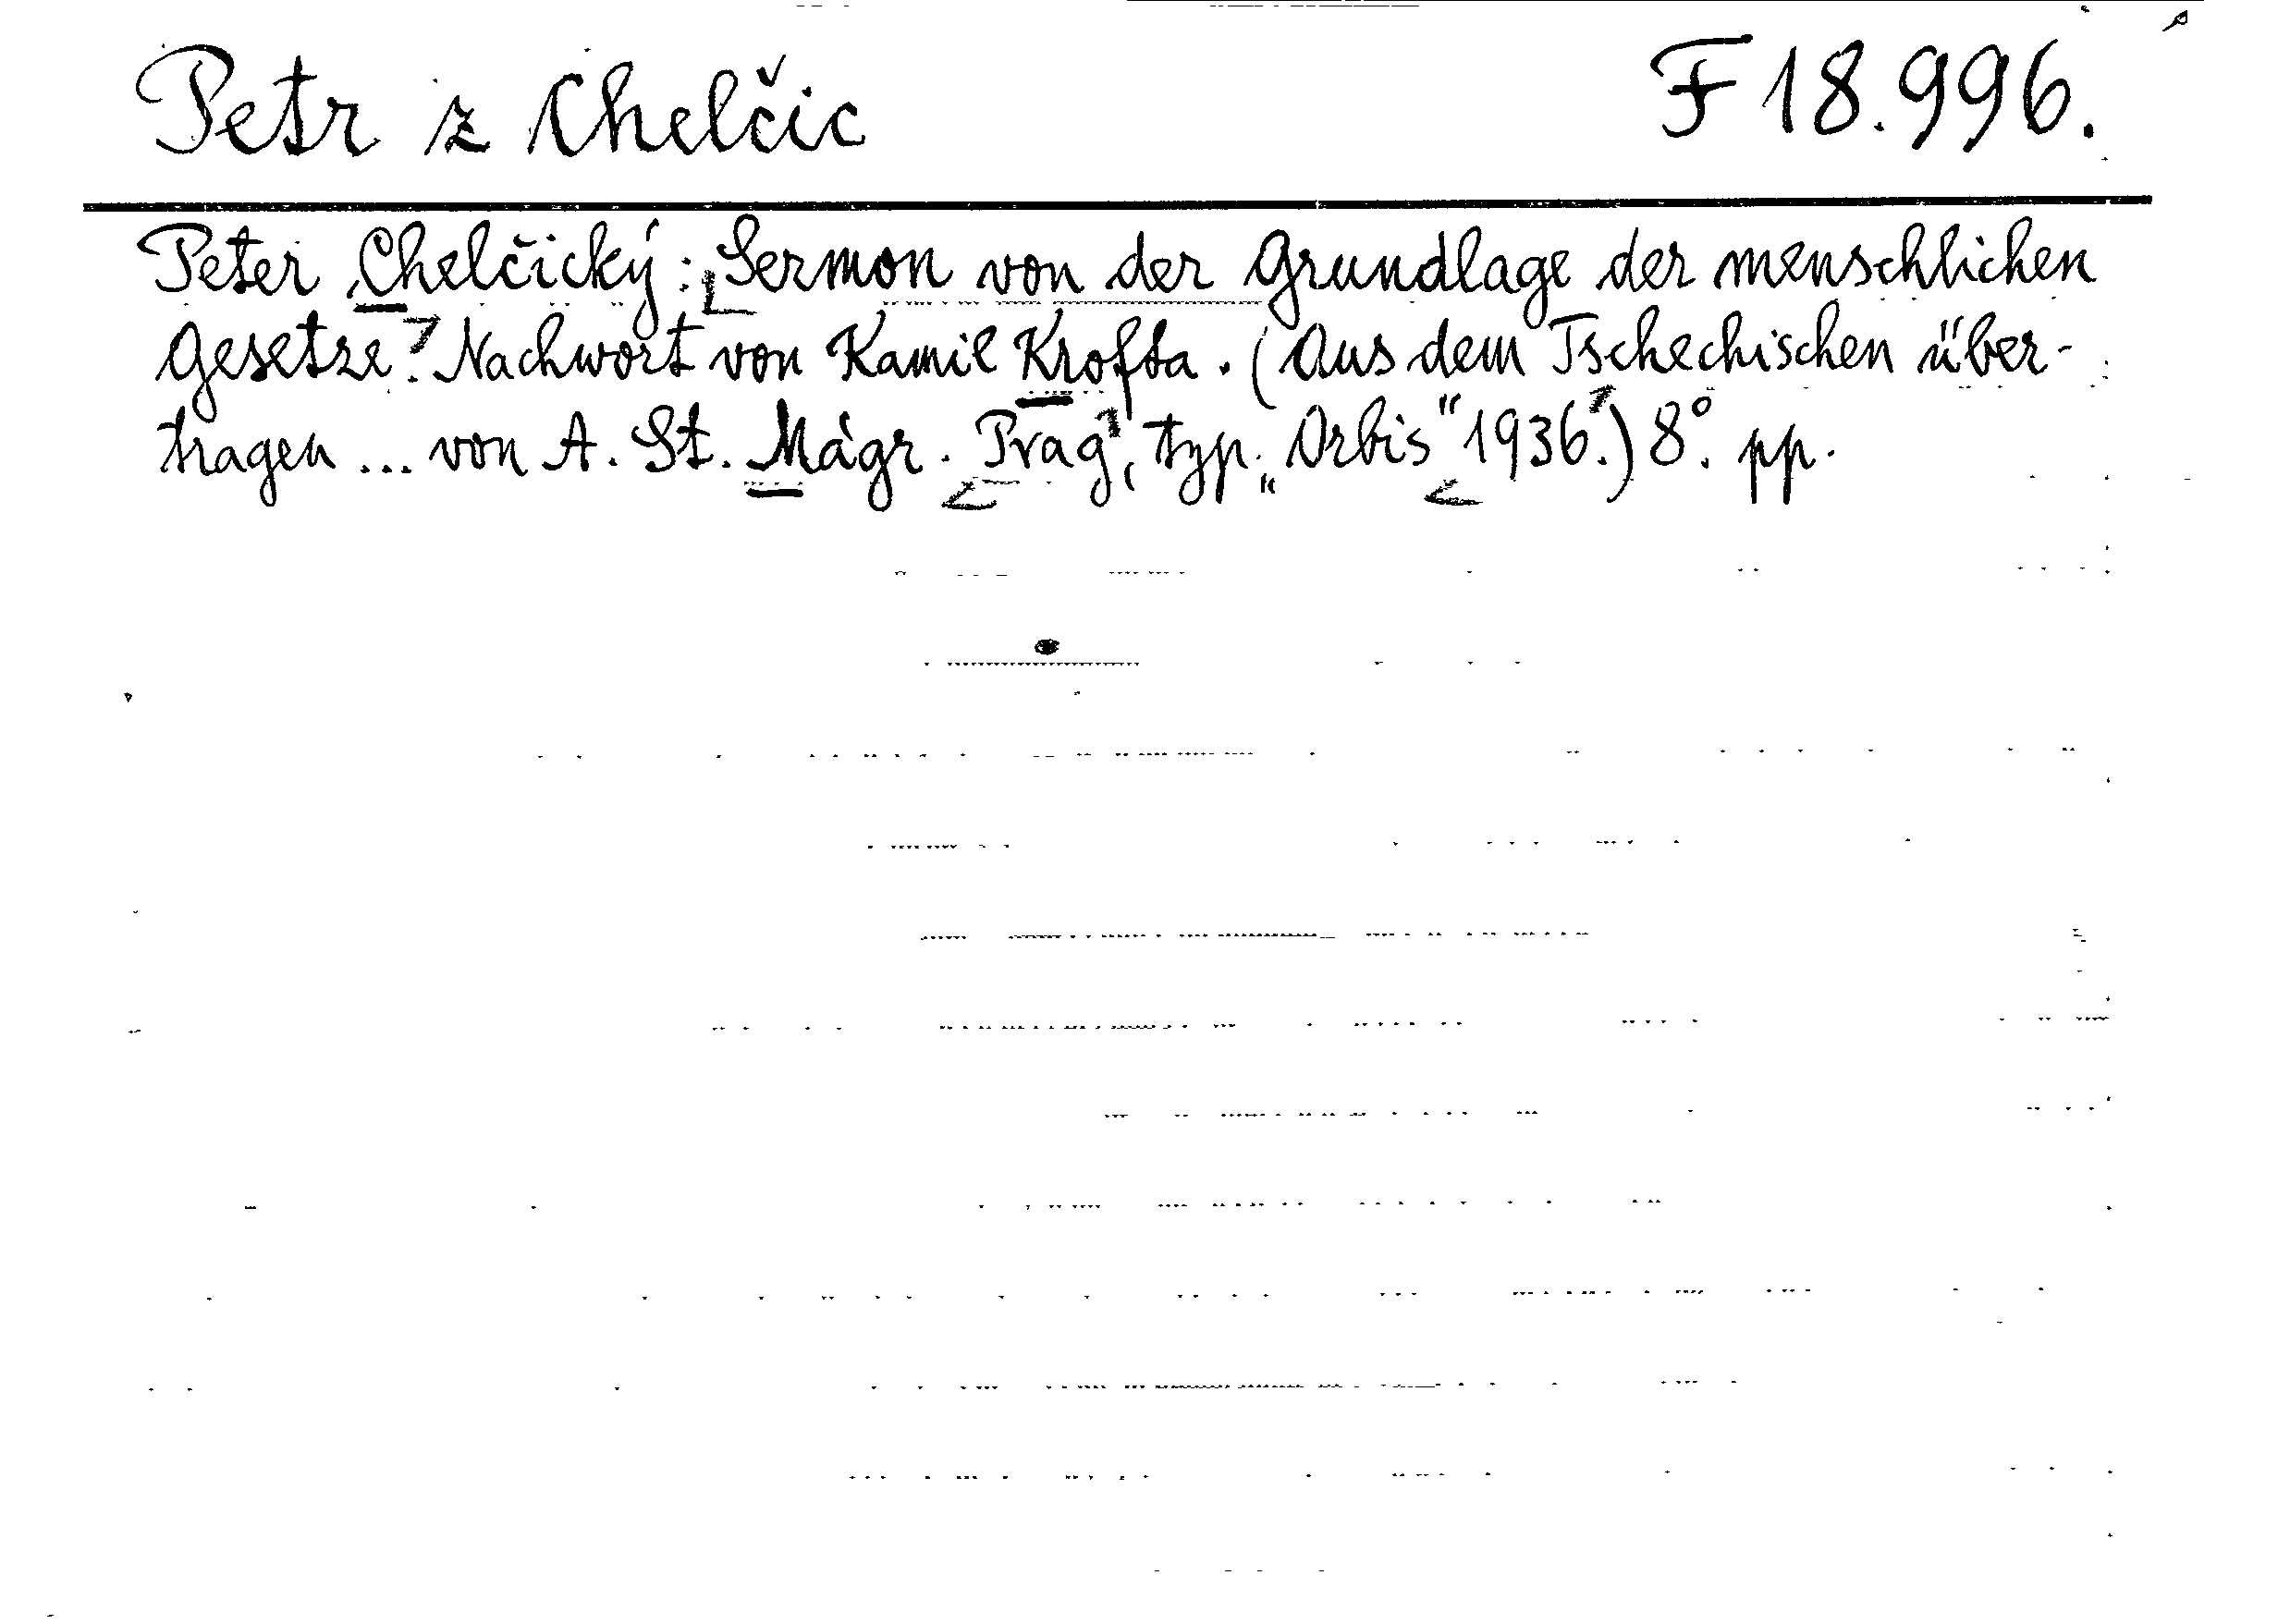 Petr z Chelčic
F 18.996.
Peter Chelčický: Sermon von der Grundlage der menschlichen
Gesetze. Nachwort von Kamil Krofta. (Aus dem Tschechischen über-
tragen ... von A. St. Mágr. Prag, typ. „Orbis“ 1936.) 8°. pp.